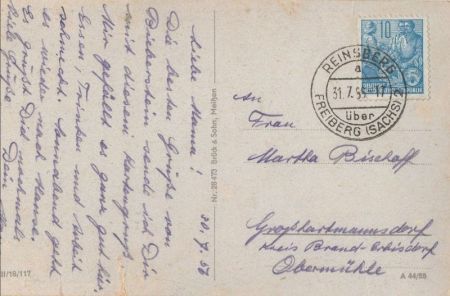 30.7.56
Liebe Mama!
Die besten Grüße von
Bieberstein sende ich Dir
mit diesem Kartengruß.
Mir gefällt es ganz gut hier,
Essen, Trinken und Arbeit
schmeckt. Sonnabend geht
es wieder nach Hause.
Es grüßt Dich nochmals
viele Grüße
Dein
III/18/117
Nr. 28473 Brück & Sohn, Meißen
10
REINSBERG
a
31.7.5
über
FREIBERG (SACHS) 2
An
Frau
Martha Bischoff
Großhartmannsdorf
Kreis Brand-Erbisdorf
Obermühle
A 44/55